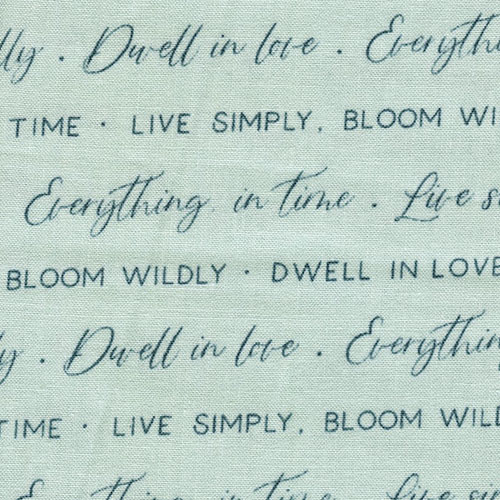 lly . Dwell in love . Everythi
TIME · LIVE SIMPLY, BLOOM WI
Everything in time . Live s
BLOOM WILDLY · DWELL IN LOVE
ly . Dwell in love . Everythin
TIME · LIVE SIMPLY, BLOOM WILD
Everything in time . Live si